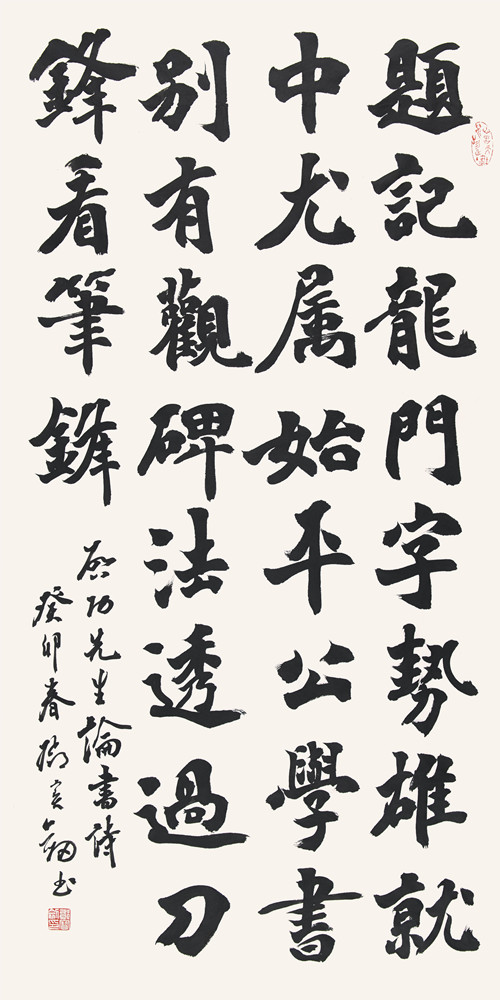 題記龍門字勢雄就
中尤属始平公學書
别有觀碑法透過刀
鋒看筆鋒
啟功先生論書詩
癸卯春
書